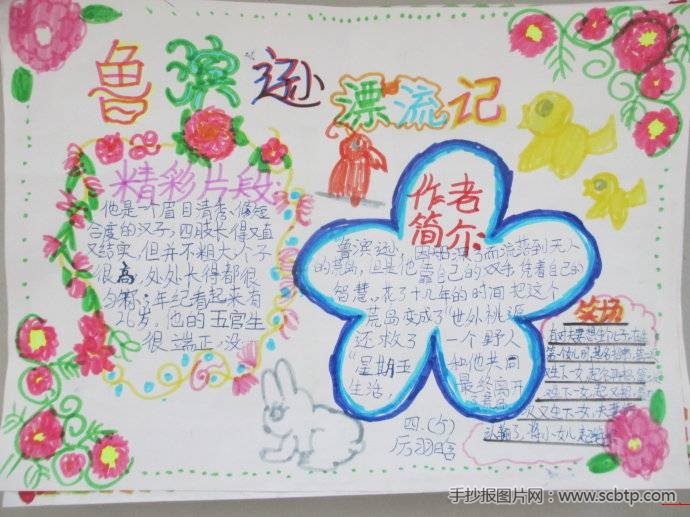 鲁滨逊
漂流记
精彩片段:
他是一个眉目清秀、修短
合度的汉子;四肢长得又直
又结实,但并不粗大;个子
很高,处处长得都很
匀称;年纪看起来有
26岁。他的五官生
很端正,没
作者
简介:
鲁滨逊
而流落到无人
的荒岛,但是他靠自己的双手,凭着自己的
智慧。花了十几年的时间把这个
荒岛变成了"世外桃源
还救了一个野人
"星期五 和他共同
生活, 最终离开
笑话
四.(5)
厉羽晗
手抄报图片网:www.scbtp.com